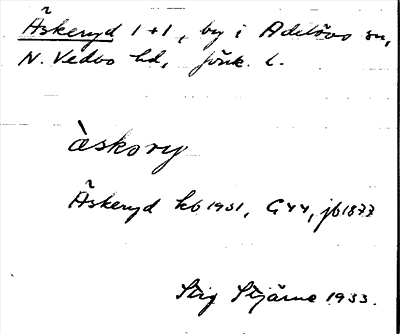 Äskeryd 1+1, by i Adelövs sn,
N. Vedbo hd, Jönk. l.
àskory
Äskeryd kb 1931, G 44, jb 1877
Stig Stjärne 1933.